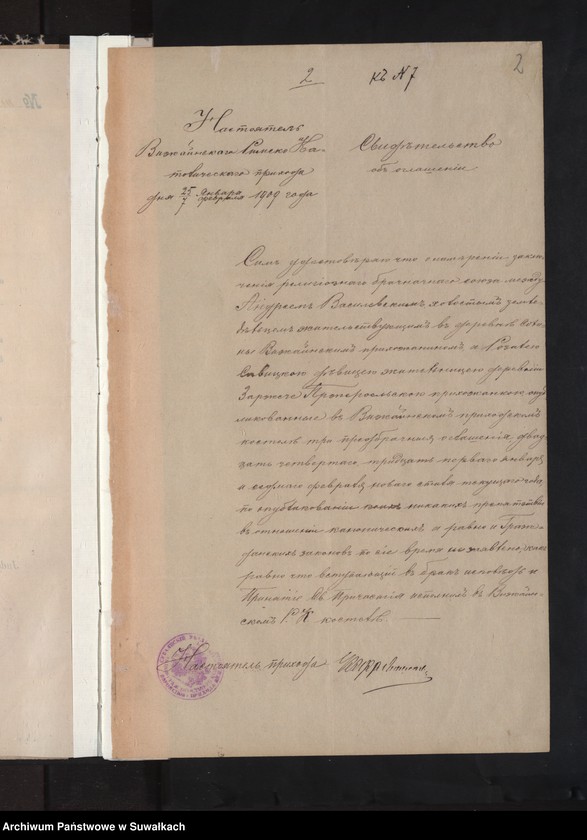 2 къ N 7 2
Настоятель
Вижайнскаго Римско Ка-
толическаго прихода
дня 25 Января / 7 Февраля 1909 года
Свидѣтельство
объ оглашеніи
Симъ удостовѣряю что о намѣреніи заклю
ченія религіознаго брачнаго союза между
Андреемъ Василевскимъ, холостымъ земле-
дѣльцемъ жительствующимъ въ деревнѣ
Вижайнскимъ прихожаниномъ а
Савицкою дѣвицею жительницею деревни
прихожанкою опуб
ликованные въ Вижайнскомъ приходскомъ
костелѣ три предбрачныя оглашенія, двад
цать четвертаго тридцать перваго января
и седьмаго февраля новаго стиля текущаго года
по опубликованіи коихъ никакихъ препятствій
въ отношеніи каноническихъ а равно и Граж
данскихъ законовъ по сіе время не заявлено,
равно что вступающій въ бракъ исповѣдь и
въ Вижайн-
скомъ Р К костелѣ.
Настоятель прихода
Archiwum Państwowe w Suwałkach